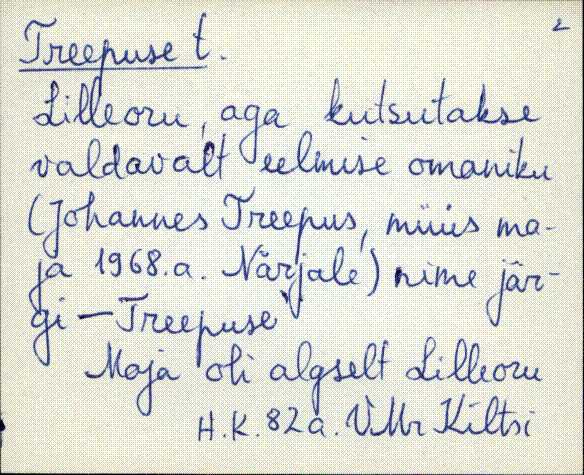 2
Treepuse t.
Lilleoru, aga kutsutakse
valdavalt eelmise omaniku
(Johannes Treepus, müüs ma-
ja 1968.a. Närjale) nime jär-
gi – Treepuse
Maja oli algselt Lilleoru
H.K. 82 a. VMr Kiltsi